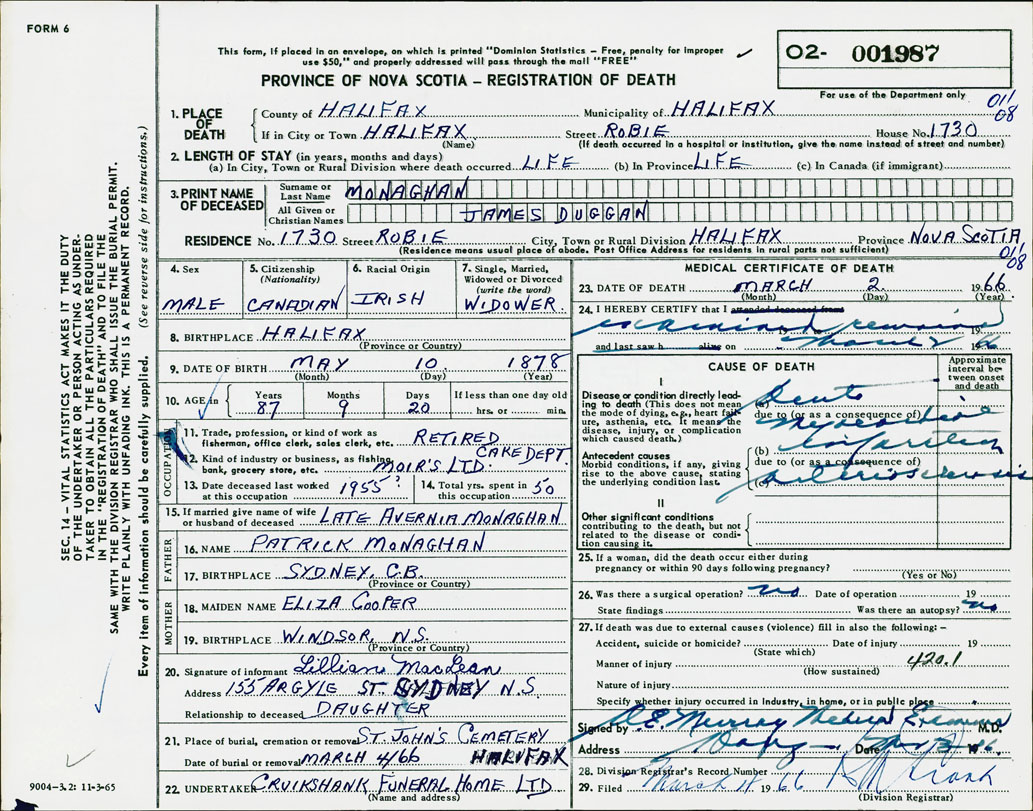 FORM 6
This form, if placed in an envelope, on which is printed "Dominion Statistics – Free, penalty for improper
use $50," and properly addressed will pass through the mail "FREE"
O2- 001987
PROVINCE OF NOVA SCOTIA – REGISTRATION OF DEATH
For use of the Department only
011
08
1. PLACE OF DEATH
County of HALIFAX Municipality of HALIFAX
If in City or Town HALIFAX Street ROBIE House No. 1730
(Name) (If death occurred in a hospital or institution, give the name instead of street and number)
2. LENGTH OF STAY (in years, months and days)
(a) In City, Town or Rural Division where death occurred LIFE (b) In Province LIFE (c) In Canada (if immigrant)
3. PRINT NAME OF DECEASED
Surname or Last Name MONAGHAN
All Given or Christian Names JAMES DUGGAN
RESIDENCE No. 1730 Street ROBIE City, Town or Rural Division HALIFAX Province NOVA SCOTIA
(Residence means usual place of abode. Post Office Address for residents in rural parts not sufficient)
011
08
4. Sex MALE
5. Citizenship (Nationality) CANADIAN
6. Racial Origin IRISH
7. Single, Married, Widowed or Divorced (write the word) WIDOWER
8. BIRTHPLACE HALIFAX
(Province or Country)
9. DATE OF BIRTH MAY 10 1878
(Month) (Day) (Year)
10. AGE in Years Months Days If less than one day old
87 9 20 hrs. or min.
OCCUPATION
11. Trade, profession, or kind of work as
fisherman, office clerk, sales clerk, etc. RETIRED
CAKE DEPT.
12. Kind of industry or business, as fishing,
bank, grocery store, etc. MOIR'S LTD.
13. Date deceased last worked
at this occupation 1955?
14. Total yrs. spent in
this occupation 50
15. If married give name of wife
or husband of deceased LATE AVERNIA MONAGHAN
FATHER
16. NAME PATRICK MONAGHAN
17. BIRTHPLACE SYDNEY, C.B.
(Province or Country)
MOTHER
18. MAIDEN NAME ELIZA COOPER
19. BIRTHPLACE WINDSOR, N.S.
(Province or Country)
20. Signature of informant Lillian MacLean
Address 155 ARGYLE ST. SYDNEY N.S
Relationship to deceased DAUGHTER
21. Place of burial, cremation or removal ST. JOHN'S CEMETERY
Date of burial or removal MARCH 4/66 HALIFAX
22. UNDERTAKER CRUIKSHANK FUNERAL HOME LTD
(Name and address)
MEDICAL CERTIFICATE OF DEATH
23. DATE OF DEATH MARCH 2 1966
(Month) (Day) (Year)
24. I HEREBY CERTIFY that I attended deceased from
examined remains 19
and last saw h alive on March 2 19
CAUSE OF DEATH
Approximate interval between onset and death
I
Disease or condition directly leading
to death (This does not mean
the mode of dying, e.g., heart failure,
asthenia, etc. It means the
disease, injury, or complication
which caused death.)
Acute
due to (or as a consequence of)
Myocardial
(b) Infarction
Antecedent causes
Morbid conditions, if any, giving
rise to the above cause, stating
the underlying condition last.
due to (or as a consequence of)
(c) Arteriosclerosis
II
Other significant conditions
contributing to the death, but not
related to the disease or condition
causing it.
25. If a woman, did the death occur either during
pregnancy or within 90 days following pregnancy?
(Yes or No)
26. Was there a surgical operation? no Date of operation 19
State findings Was there an autopsy? no
27. If death was due to external causes (violence) fill in also the following: –
Accident, suicide or homicide? Date of injury 19
(State which)
Manner of injury 420.1
(How sustained)
Nature of injury
Specify whether injury occurred in Industry, in home, or in public place
Signed by E. Murray Medical Examiner M.D.
Address Date 19
28. Division Registrar's Record Number
29. Filed March 4 1966
(Division Registrar)
SEC. 14 – VITAL STATISTICS ACT MAKES IT THE DUTY
OF THE UNDERTAKER OR PERSON ACTING AS UNDERTAKER
TO OBTAIN ALL THE PARTICULARS REQUIRED
IN THE "REGISTRATION OF DEATH" AND TO FILE THE
SAME WITH THE DIVISION REGISTRAR WHO SHALL ISSUE THE BURIAL PERMIT.
WRITE PLAINLY WITH UNFADING INK. THIS IS A PERMANENT RECORD.
Every item of information should be carefully supplied. (See reverse side for instructions.)
9004–3.2: 11-3-65